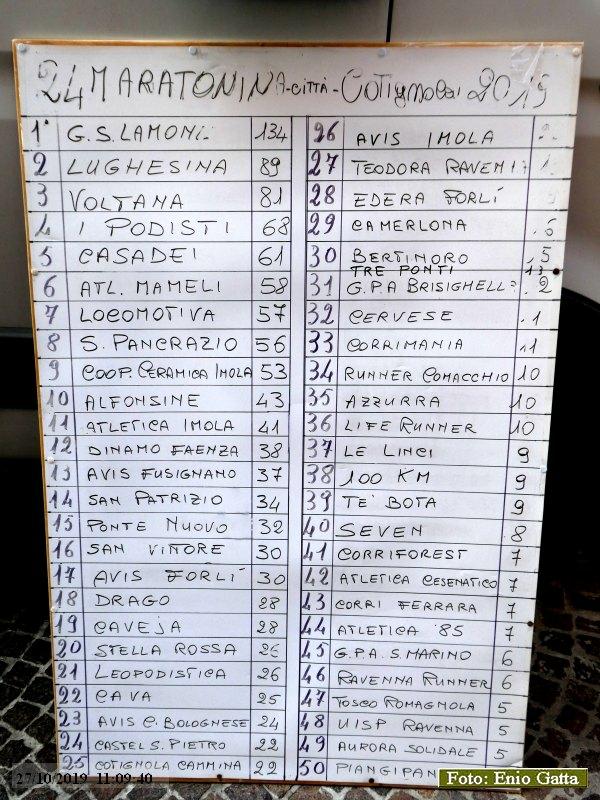 24 MARATONINA-CITTÀ-COTIGNOLA 2019
1° G.S. LAMONE 134
2 LUGHESINA 89
3 VOLTANA 81
4 I PODISTI 68
5 CASADEI 61
6 ATL. MAMELI 58
7 LOCOMOTIVA 57
8 S. PANCRAZIO 56
9 COOP. CERAMICA IMOLA 53
10 ALFONSINE 43
11 ATLETICA IMOLA 41
12 DINAMO FAENZA 38
13 AVIS FUSIGNANO 37
14 SAN PATRIZIO 34
15 PONTE NUOVO 32
16 SAN VITTORE 30
17 AVIS FORLÍ 30
18 DRAGO 28
19 CAVEJA 28
20 STELLA ROSSA 26
21 LEOPODISTICA 26
22 CAVA 25
23 AVIS C. BOLOGNESE 24
24 CASTEL S. PIETRO 22
25 COTIGNOLA CAMMINA 22
26 AVIS IMOLA
27 TEODORA
28 EDERA FORLÍ
29 CAMERLONA
30 BERTINORO
TRE PONTI 13
31 G.P.A BRISIGHELLA
32 CERVESE
33 CORRIMANIA
34 RUNNER COMACCHIO 10
35 AZZURRA 10
36 LIFE RUNNER 10
37 LE LINCI 9
38 100 KM 9
39 TE' BOTA 9
40 SEVEN 8
41 CORRIFOREST 7
42 ATLETICA CESENATICO 7
43 CORRI FERRARA 7
44 ATLETICA '85 7
45 G.P.A. S. MARINO 6
46 RAVENNA RUNNER 6
47 TOSCO ROMAGNOLA 5
48 UISP RAVENNA 5
49 AURORA SOLIDALE 5
50 PIANGIPAN
27/10/2019 11:09:40
Foto: Enio Gatta